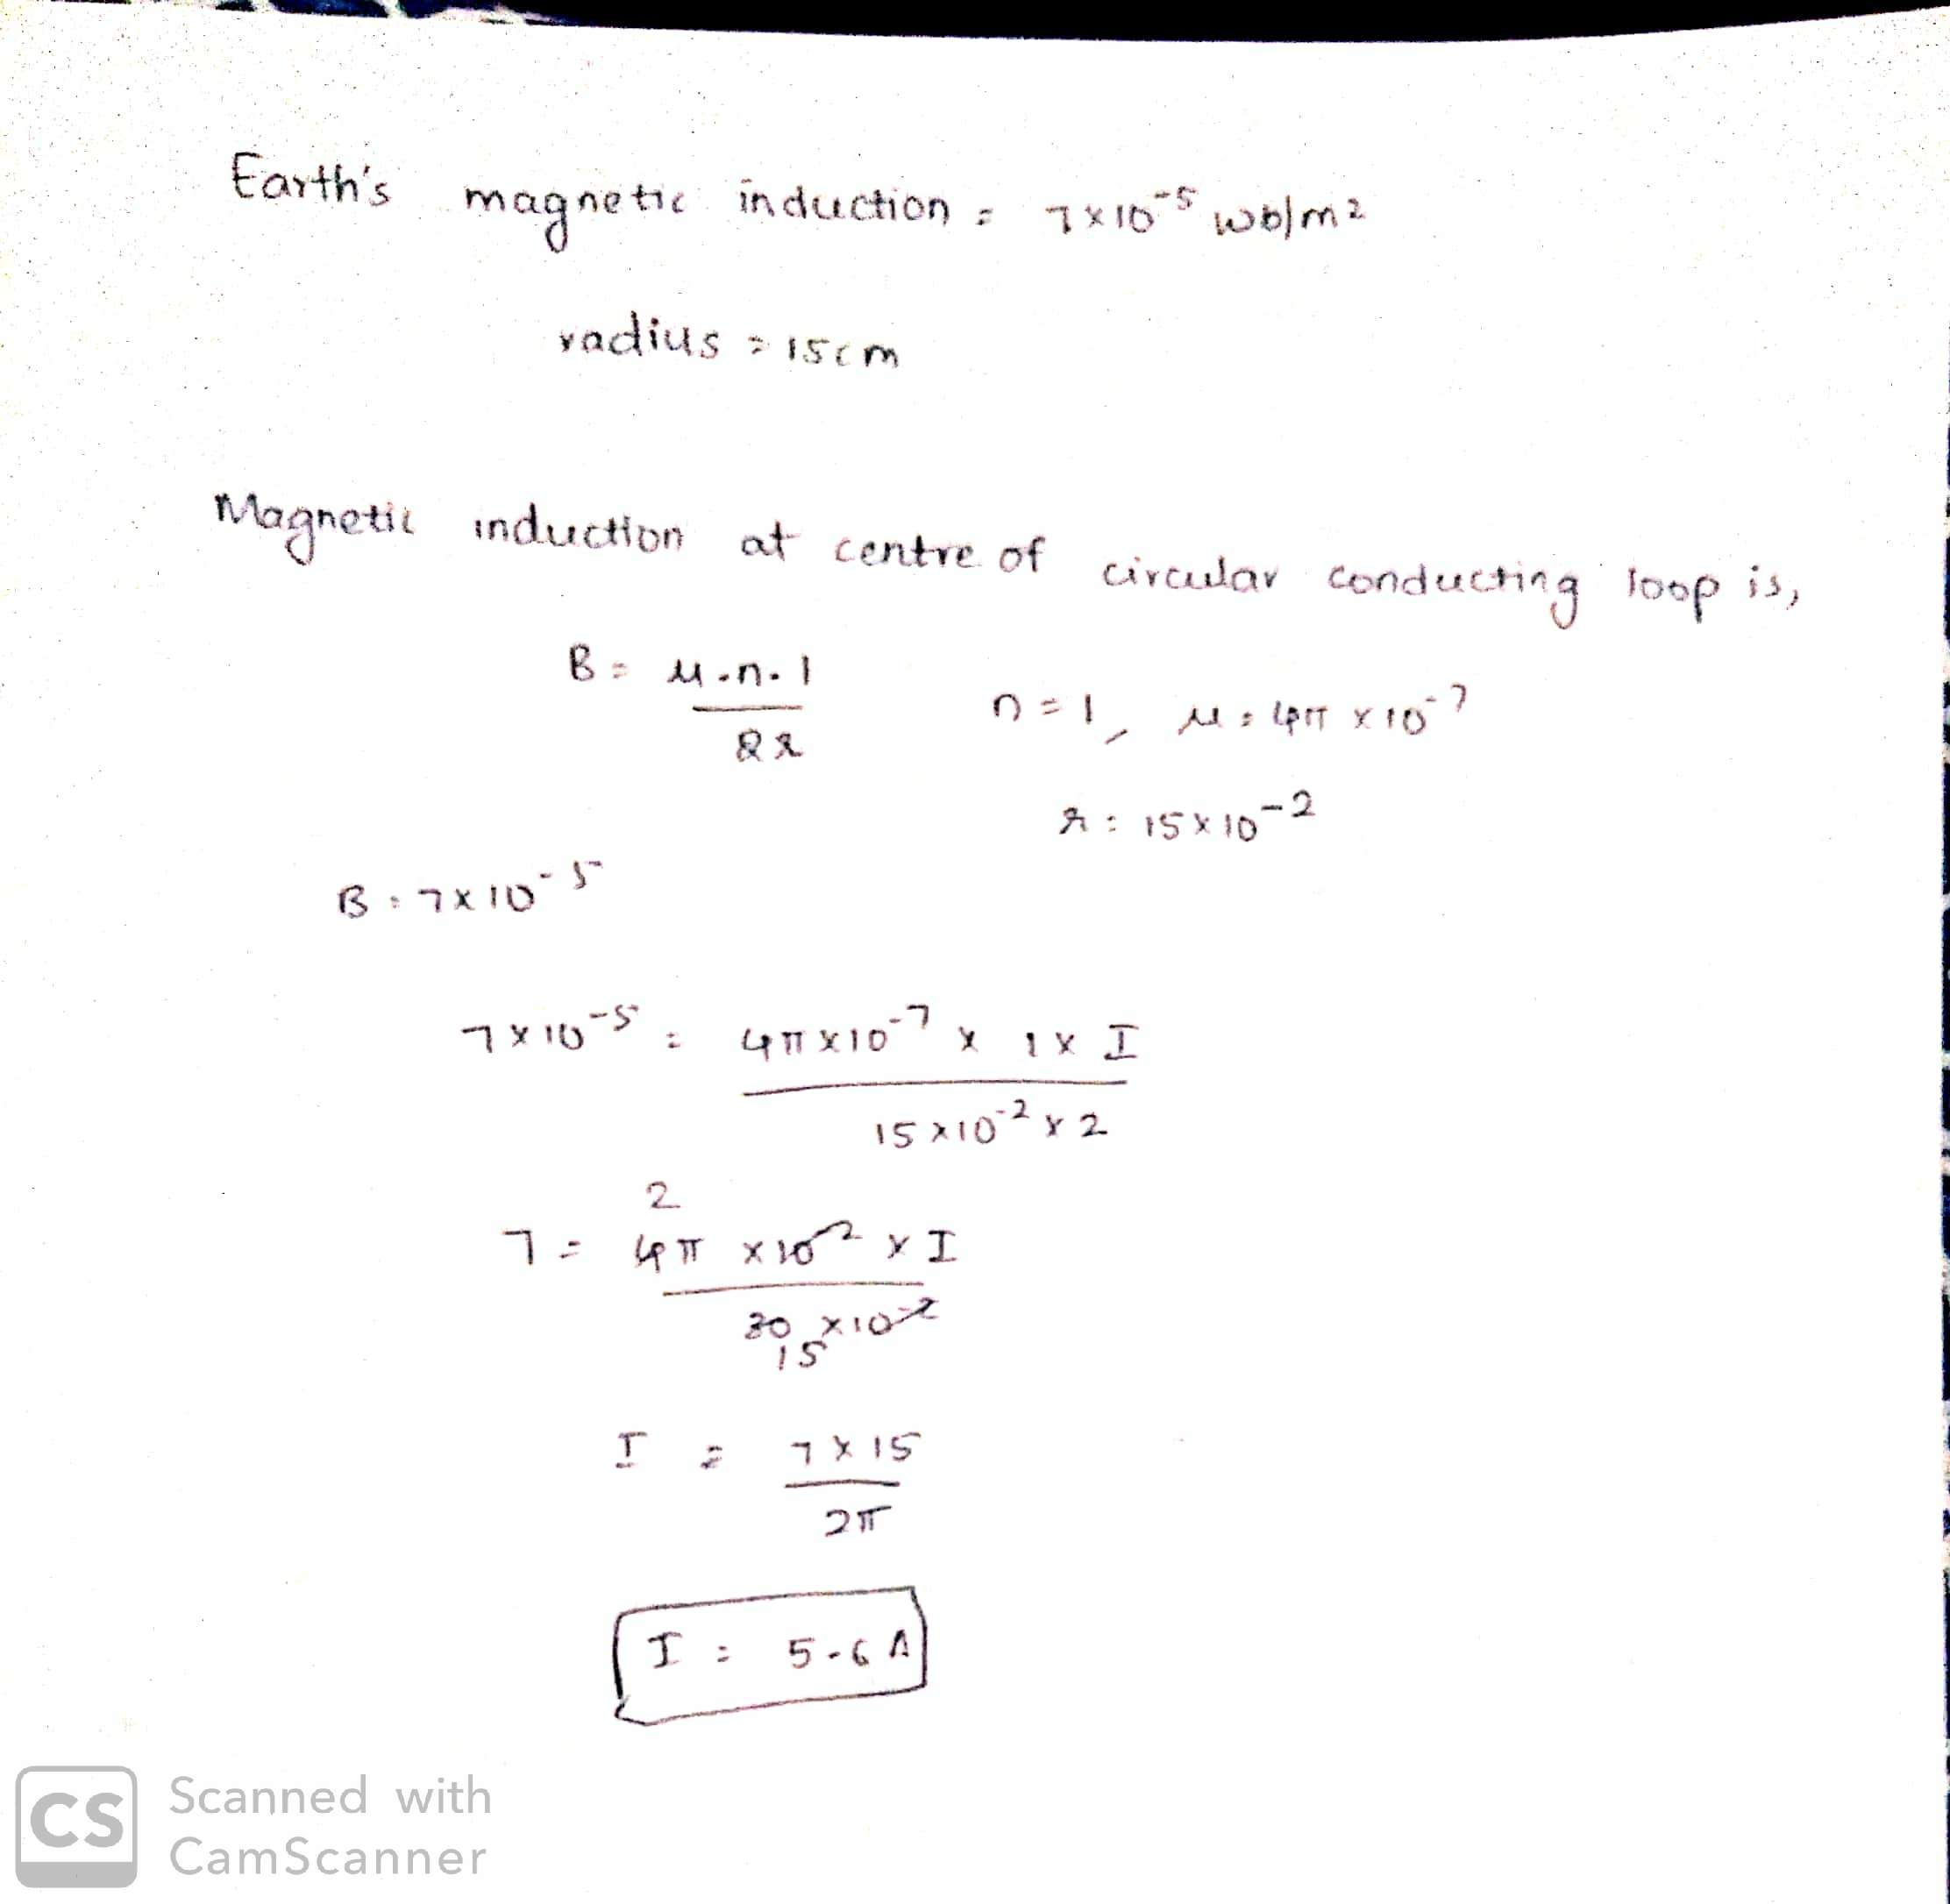 Earth's magnetic induction = 7×10⁻⁵ wb/m²
radius = 15cm
Magnetic induction at centre of circular conducting loop is,
B = μ.n.I / 2r
n=1, μ = 4π × 10⁻⁷
r = 15×10⁻²
B = 7×10⁻⁵
7×10⁻⁵ = 4π×10⁻⁷ × 1 × I / 15×10⁻² × 2
2
7 = 4π × 10⁻² × I / 30 × 10⁻²
15
I = 7×15 / 2π
I = 5.6 A
CS Scanned with
CamScanner